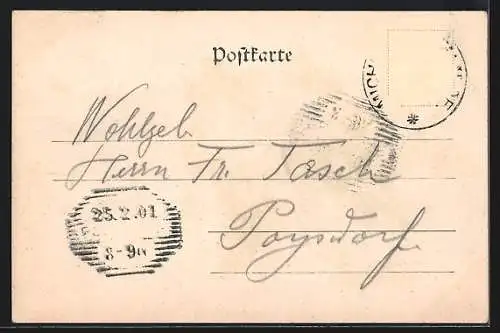 Postkarte
Wohlgeb.
Herrn Fr. Tasch
Poysdorf.
25.2.01
8-9N